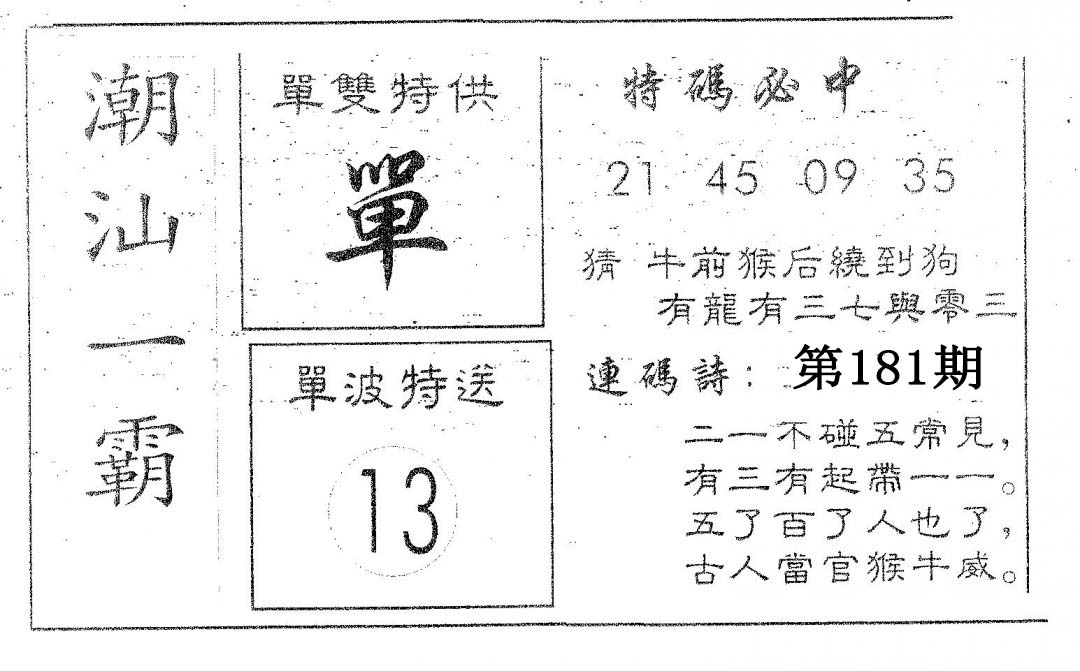 潮汕一霸
單雙特供
單
單波特送
13
特碼必中
21 45 09 35
猜 牛前猴后繞到狗
有龍有三七與零三
連碼詩：第181期
二一不碰五常見，
有三有起帶一一。
五了百了人也了，
古人當官猴牛威。